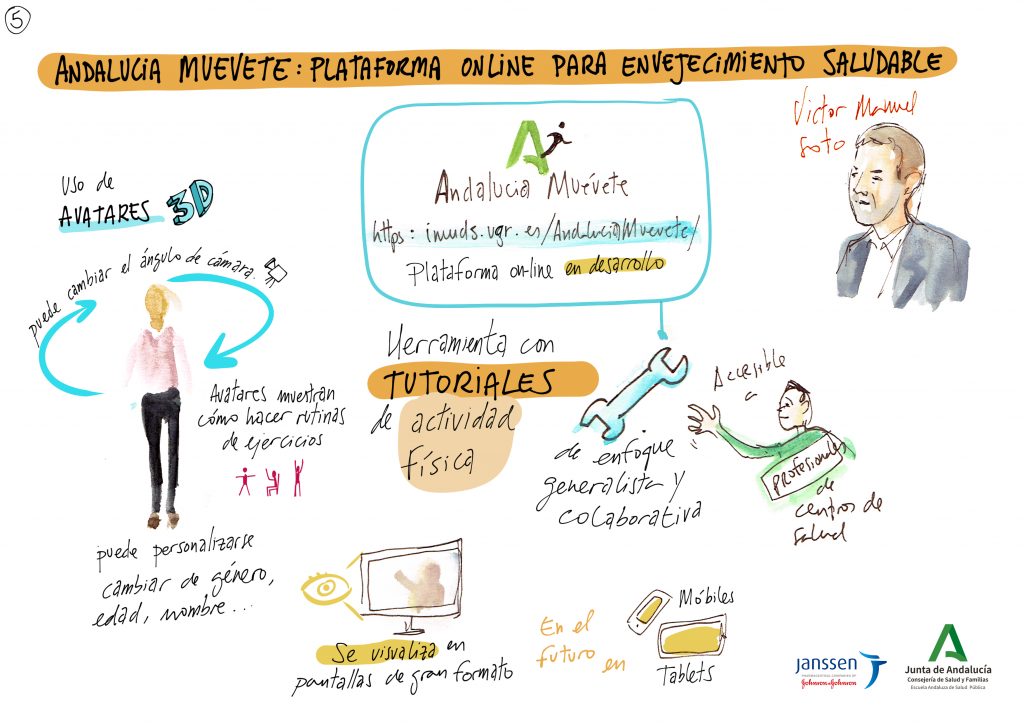 5
ANDALUCIA MUEVETE: PLATAFORMA ONLINE PARA ENVEJECIMIENTO SALUDABLE
Victor Manuel
Soto
Andalucia Muévete
https: imuds.ugr.es/AndaluciaMuevete/
Plataforma on-line en desarrollo
Uso de
AVATARES 3D
puede cambiar el ángulo de cámara
Avatares muestran
cómo hacer rutinas
de ejercicios
puede personalizarse
cambiar de género,
edad, nombre...
Herramienta con
TUTORIALES
de actividad
física
de enfoque
generalista y
colaborativa
Accesible
a
PROfesionales
de
centros de
salud
Se visualiza en
pantallas de gran formato
En el
futuro
en
Móbiles
Tablets
janssen
PHARMACEUTICAL COMPANIES OF
Johnson & Johnson
Junta de Andalucía
Consejería de Salud y Familias
Escuela Andaluza de Salud Pública